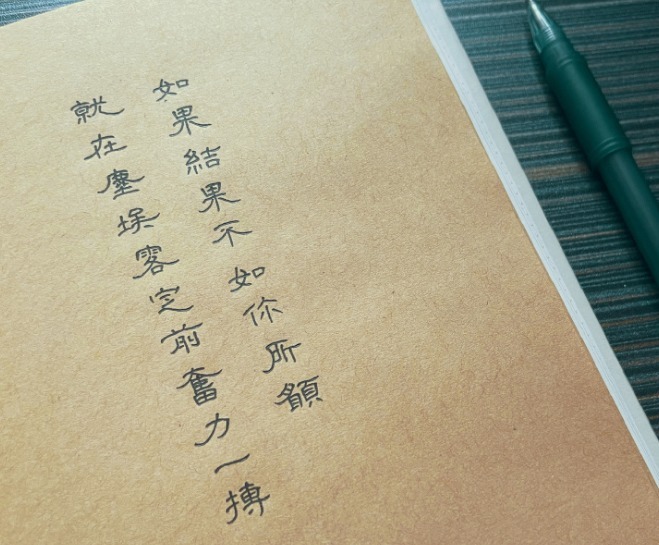 如果結果不如你所額
就在塵埃客定前奮力一搏